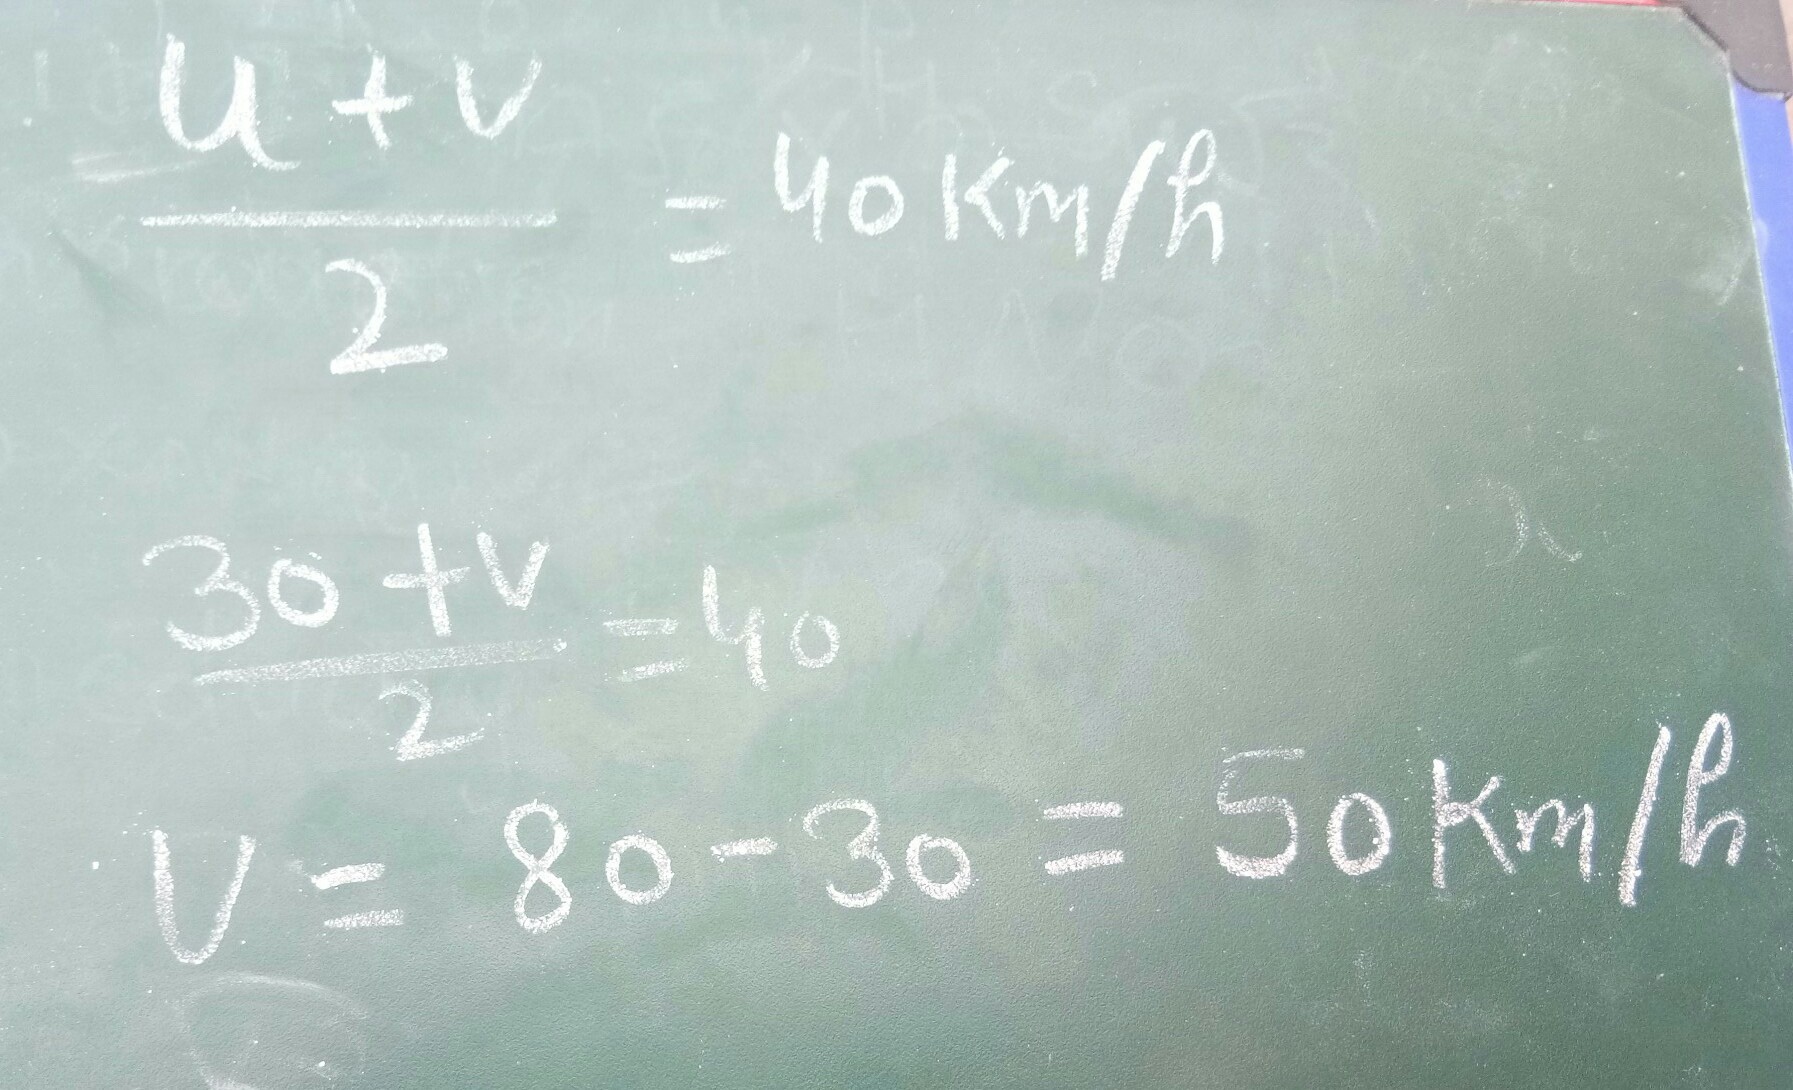 u + v
2
= 40 Km/h
30 + v
2
= 40
v = 80 - 30 = 50 Km/h